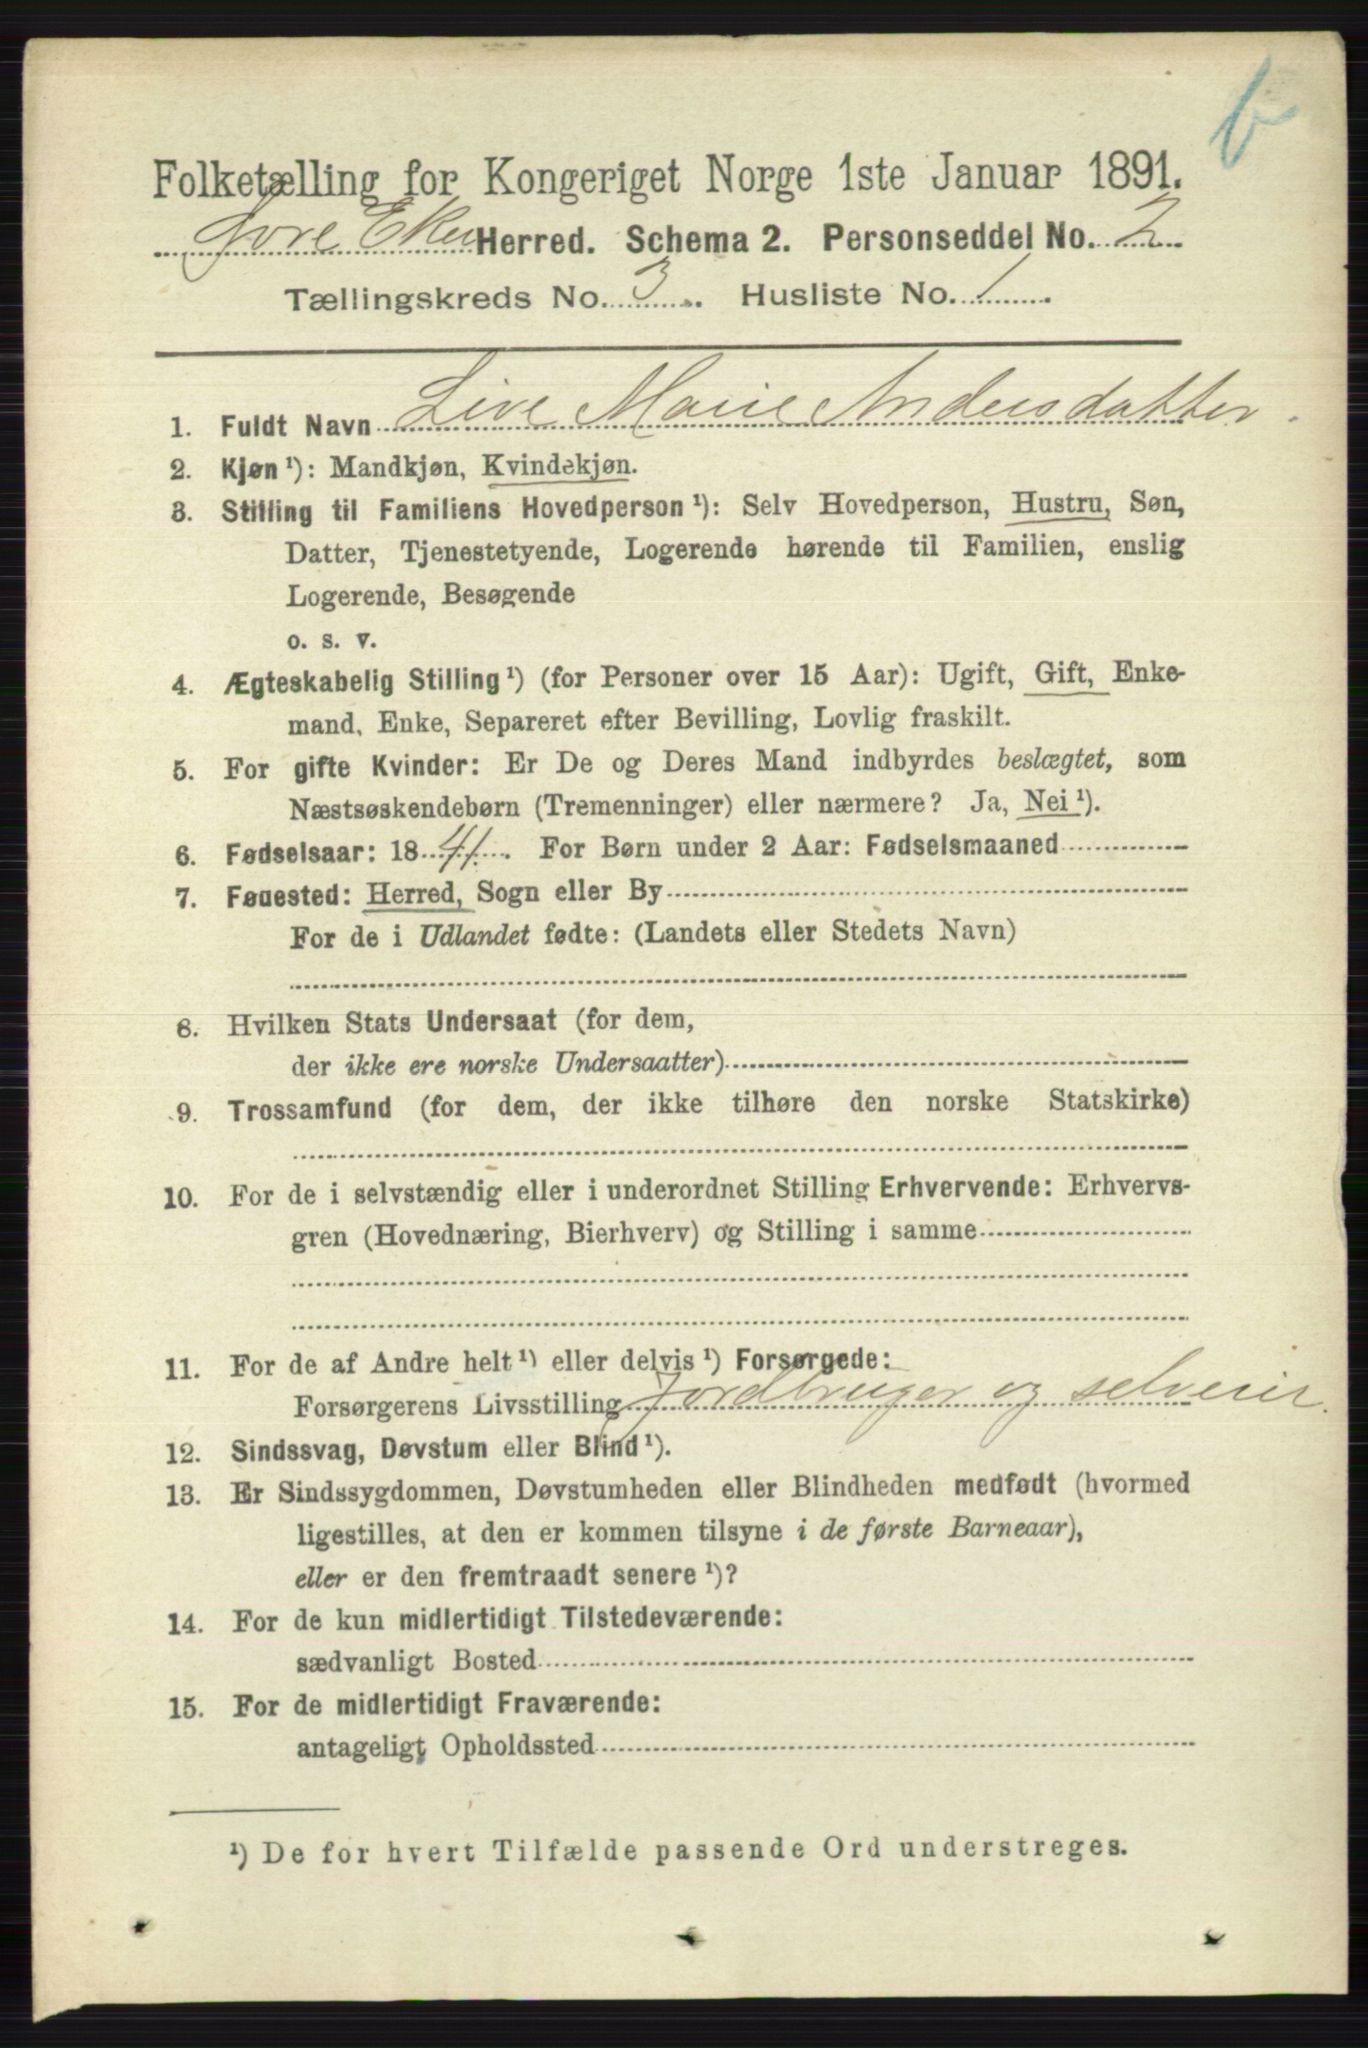 b
Folketælling for Kongeriget Norge 1ste Januar 1891.
Øvre Eker Herred. Schema 2. Personseddel No. 2
Tællingskreds No. 3. Husliste No. 1.
1. Fuldt Navn Live Marie Andersdatter.
2. Kjøn ¹): Mandkjøn, Kvindekjøn.
3. Stilling til Familiens Hovedperson ¹): Selv Hovedperson, Hustru, Søn,
Datter, Tjenestetyende, Logerende hørende til Familien, enslig
Logerende, Besøgende
o. s. v.
4. Ægteskabelig Stilling ¹) (for Personer over 15 Aar): Ugift, Gift, Enke-
mand, Enke, Separeret efter Bevilling, Lovlig fraskilt.
5. For gifte Kvinder: Er De og Deres Mand indbyrdes beslægtet, som
Næstsøskendebørn (Tremenninger) eller nærmere? Ja, Nei ¹).
6. Fødselsaar: 1841. For Børn under 2 Aar: Fødselsmaaned
7. Fødested: Herred, Sogn eller By
For de i Udlandet fødte: (Landets eller Stedets Navn)
8. Hvilken Stats Undersaat (for dem,
der ikke ere norske Undersaatter)
9. Trossamfund (for dem, der ikke tilhøre den norske Statskirke)
10. For de i selvstændig eller i underordnet Stilling Erhvervende: Erhvervs-
gren (Hovednæring, Bierhverv) og Stilling i samme
11. For de af Andre helt ¹) eller delvis ¹) Forsørgede:
Forsørgerens Livsstilling Jordbruger og selveier.
12. Sindssvag, Døvstum eller Blind ¹).
13. Er Sindssygdommen, Døvstumheden eller Blindheden medfødt (hvormed
ligestilles, at den er kommen tilsyne i de første Barneaar),
eller er den fremtraadt senere ¹)?
14. For de kun midlertidigt Tilstedeværende:
sædvanligt Bosted
15. For de midlertidigt Fraværende:
antageligt Opholdssted
¹) De for hvert Tilfælde passende Ord understreges.